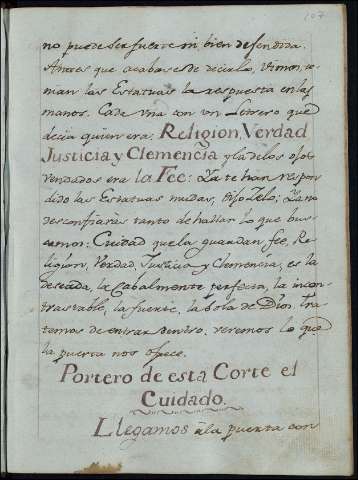 107
no puede ser fuerte ni bien defendida.
Antes que acabase de decirlo, vimos, te-
nian las Estatuas la respuesta en las
manos. Cada una con un Letrero que
decia quien era: Religion, Verdad
Justicia y Clemencia y la de los ojos
vendados era la Fee: Ya te han respon-
dido las Estatuas mudas, dijo Zelo; Ya no
desconfiarás tanto de hallar lo que bus-
camos: Ciudad que la guardan fee, Re-
ligion, Verdad, Justicia y Clemencia, es la
deseada, la Cabalmente perfecta, la incon-
trastable, la fuerte, la sola de Dios. Tra-
temos de entrar dentro, veremos lo que
la puerta nos ofrece.
Portero de esta Corte el
Cuidado.
Llegamos á la puerta con